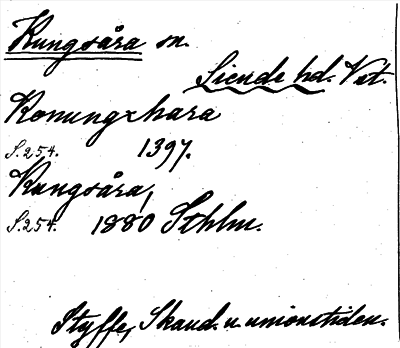 Kungsåra sn.
Siende hd. Vst.
Konungxhara
S.254. 1397.
Kungsåra,
S.254. 1880 Sthlm.
Styffe, Skand. u. unionstiden.